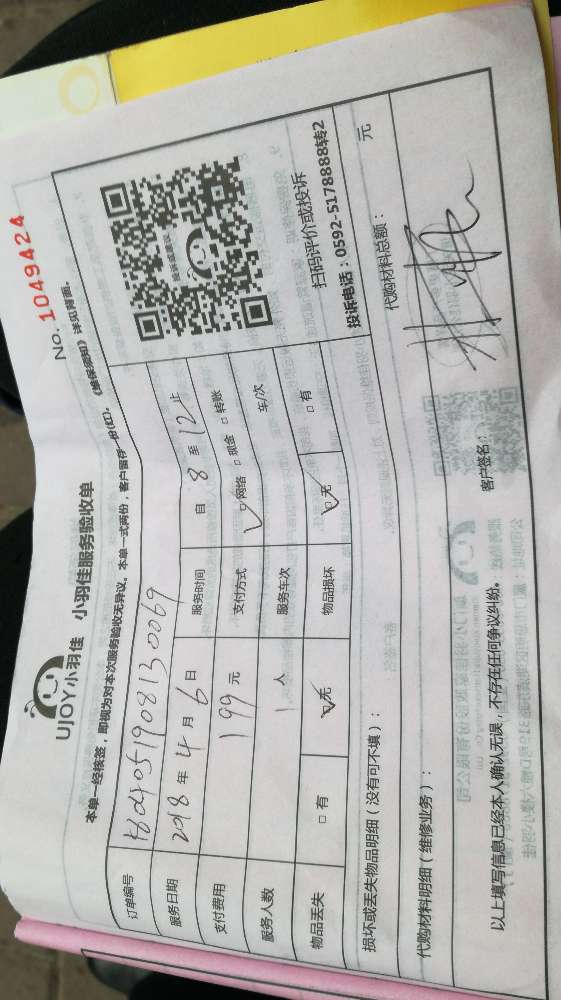 No. 1049424
UJOY小羽佳 小羽佳服务验收单
本单一经核签，即视为对本次服务验收无异议。本单一式两份，客户留存一份(红)。《维保须知》详见背面。
订单编号
服务日期 2018年4月6日 服务时间 自8至12止
支付费用 199元 支付方式 ☑网络 □现金 □转账
服务人数 1人 服务车次 车/次
物品丢失 □有 ☑无 物品损坏 ☑无 □有
扫码评价或投诉
投诉电话：0592-5178888转2
损坏或丢失物品明细（没有可不填）：
代购材料明细（维修业务）： 代购材料总额： 元
以上填写信息已经本人确认无误，不存在任何争议纠纷。 客户签名：